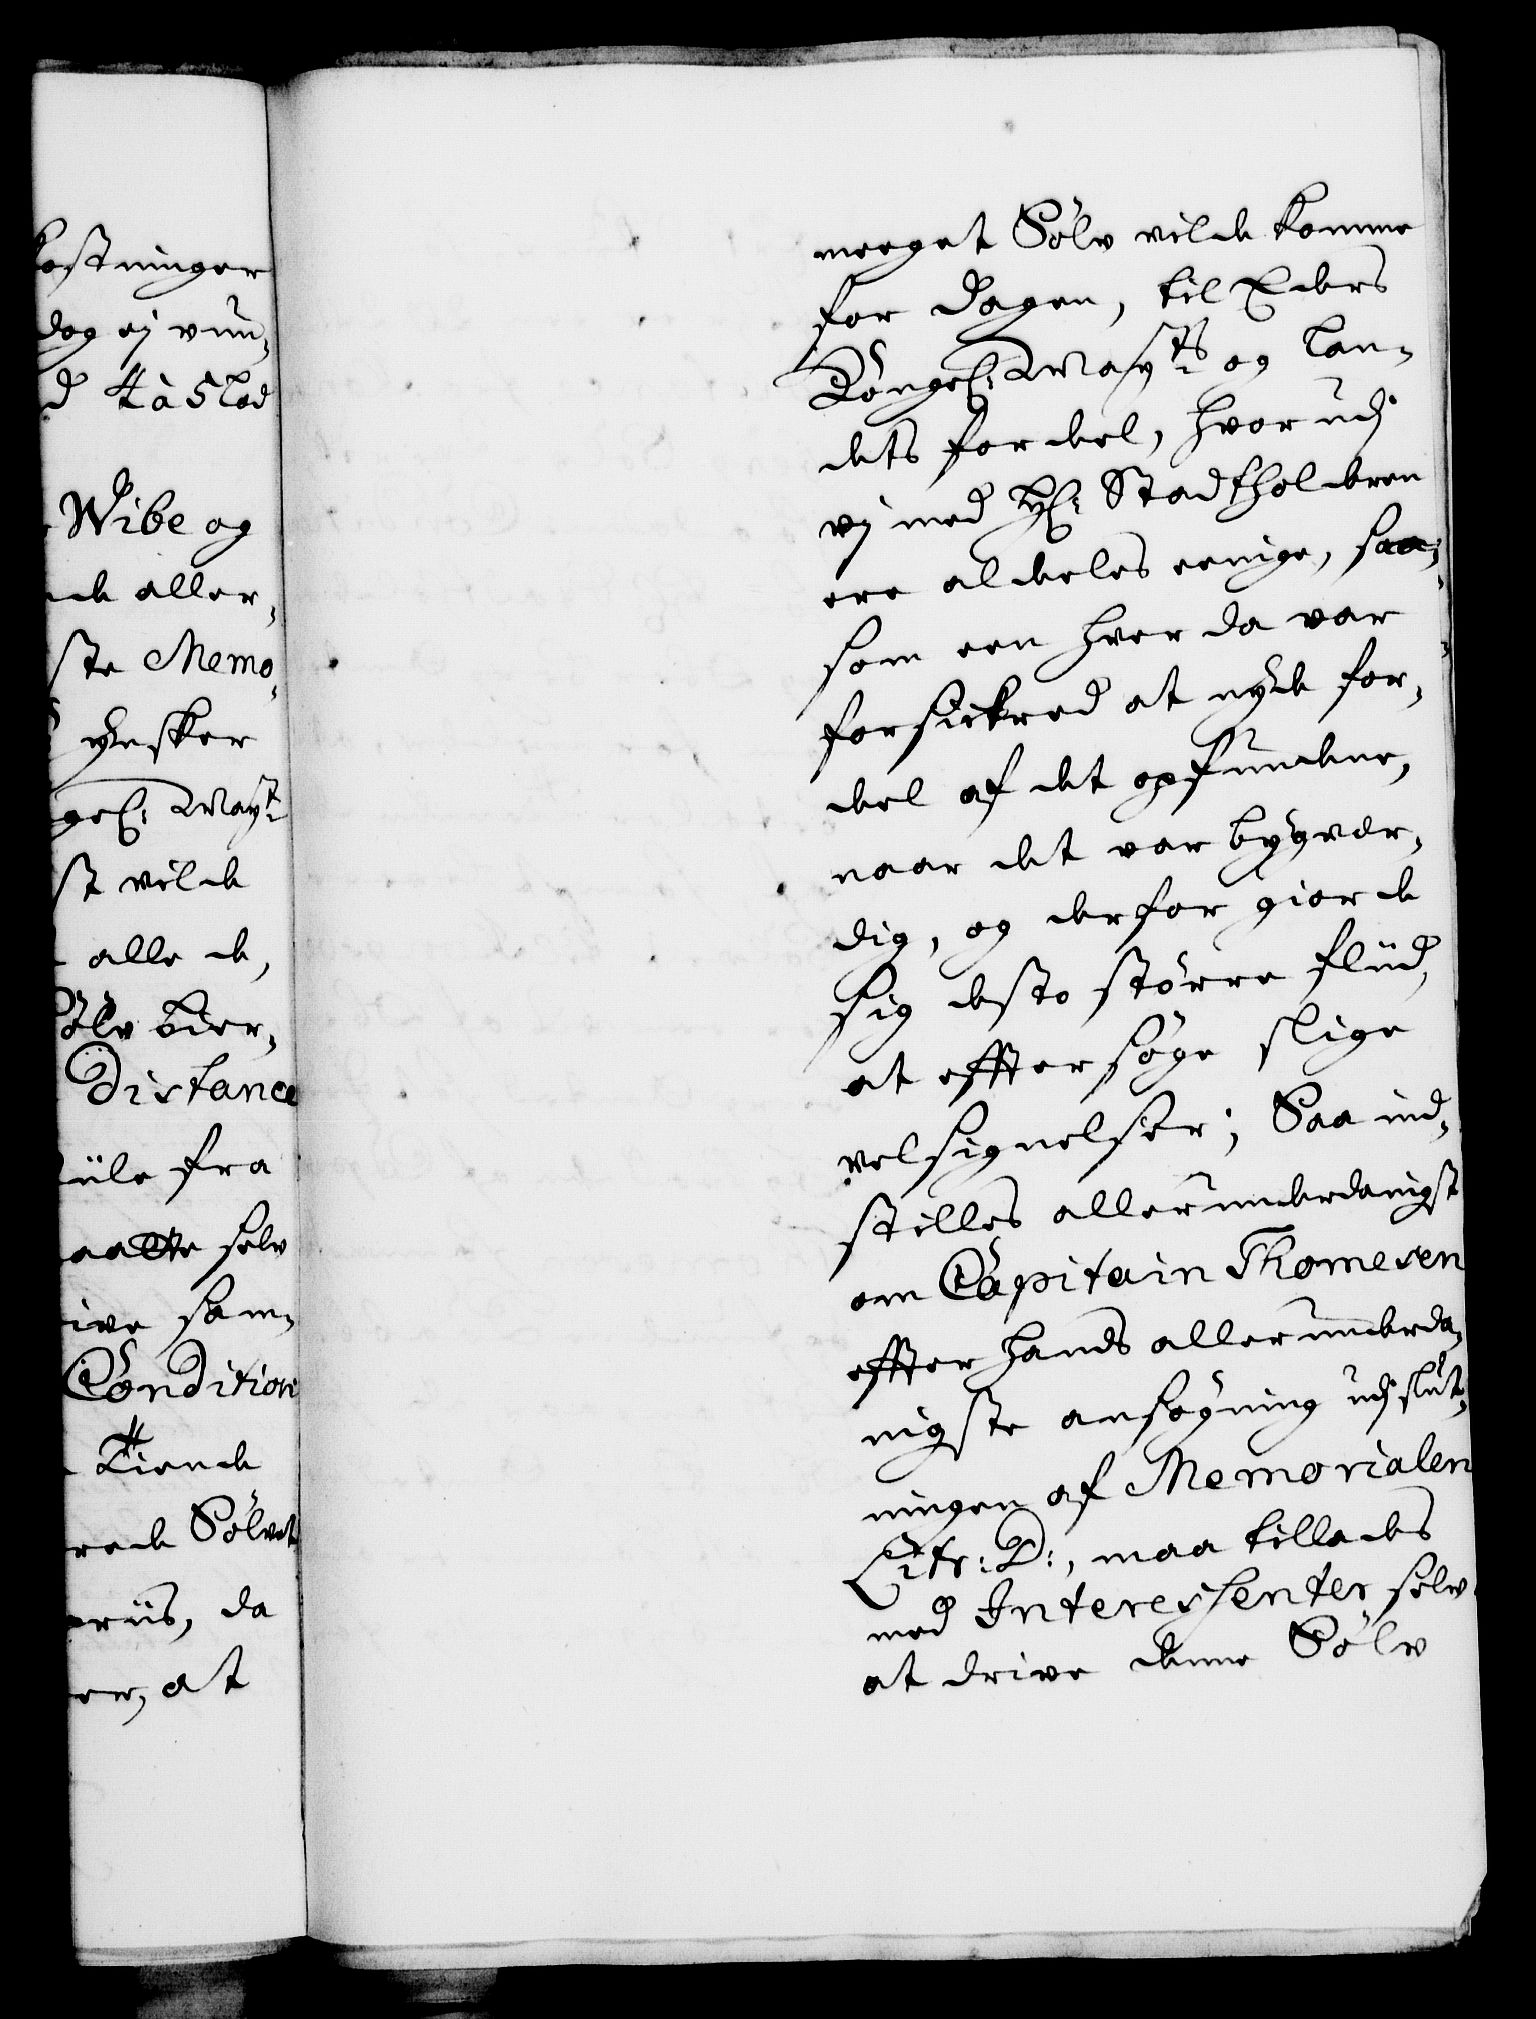 kostninger
dog ej vun-
d ₶ à 5 Lod
Wibe og
de aller-
ste Memo-
ynsker
gel: May:t
st vilde
alle de,
Sölv bier-
Distance
iile fra
maatte selv
ive sam-
Condition
Tiende
rede Sölvet
priis, da
er, at
meeget Sölv vilde komme
for dagen, til Eders
Kongel: May:ts og Lan-
dets fordeel, hvorudj
vj med H: Stadtholderen
ere aldeeles eenige, saa-
som een hver da var
forsickred at nyde for-
deel af det opfundene,
naar det var bygvær-
dig, og derfor giorde
sig desto större fliid,
at efftersøge slige
velsignelser; Saa ind-
stilles allerunderdanigst
om Capitain Thomesen
effter hands allerunderda-
nigste ansøgning udj slut-
ningen af Memorialen
Litr: D:, maa tillades
med Interessenter selv
at drive denne Sölv